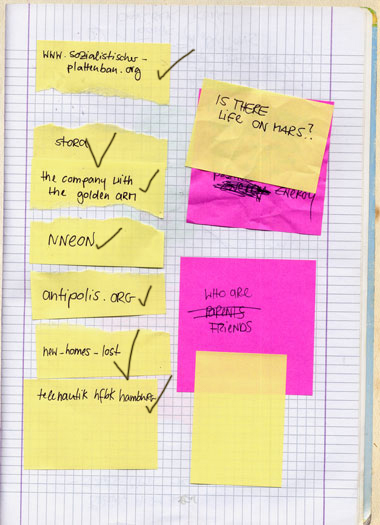 www.sozialistischer-
plattenbau.org
storad
the company with
the golden arm
NNEON
antipolis.ORG
new-homes-lost
telenautik hfbk hamburg
IS THERE
LIFE ON MARS?
ENERGY
WHO ARE
PARENTS
FRIENDS